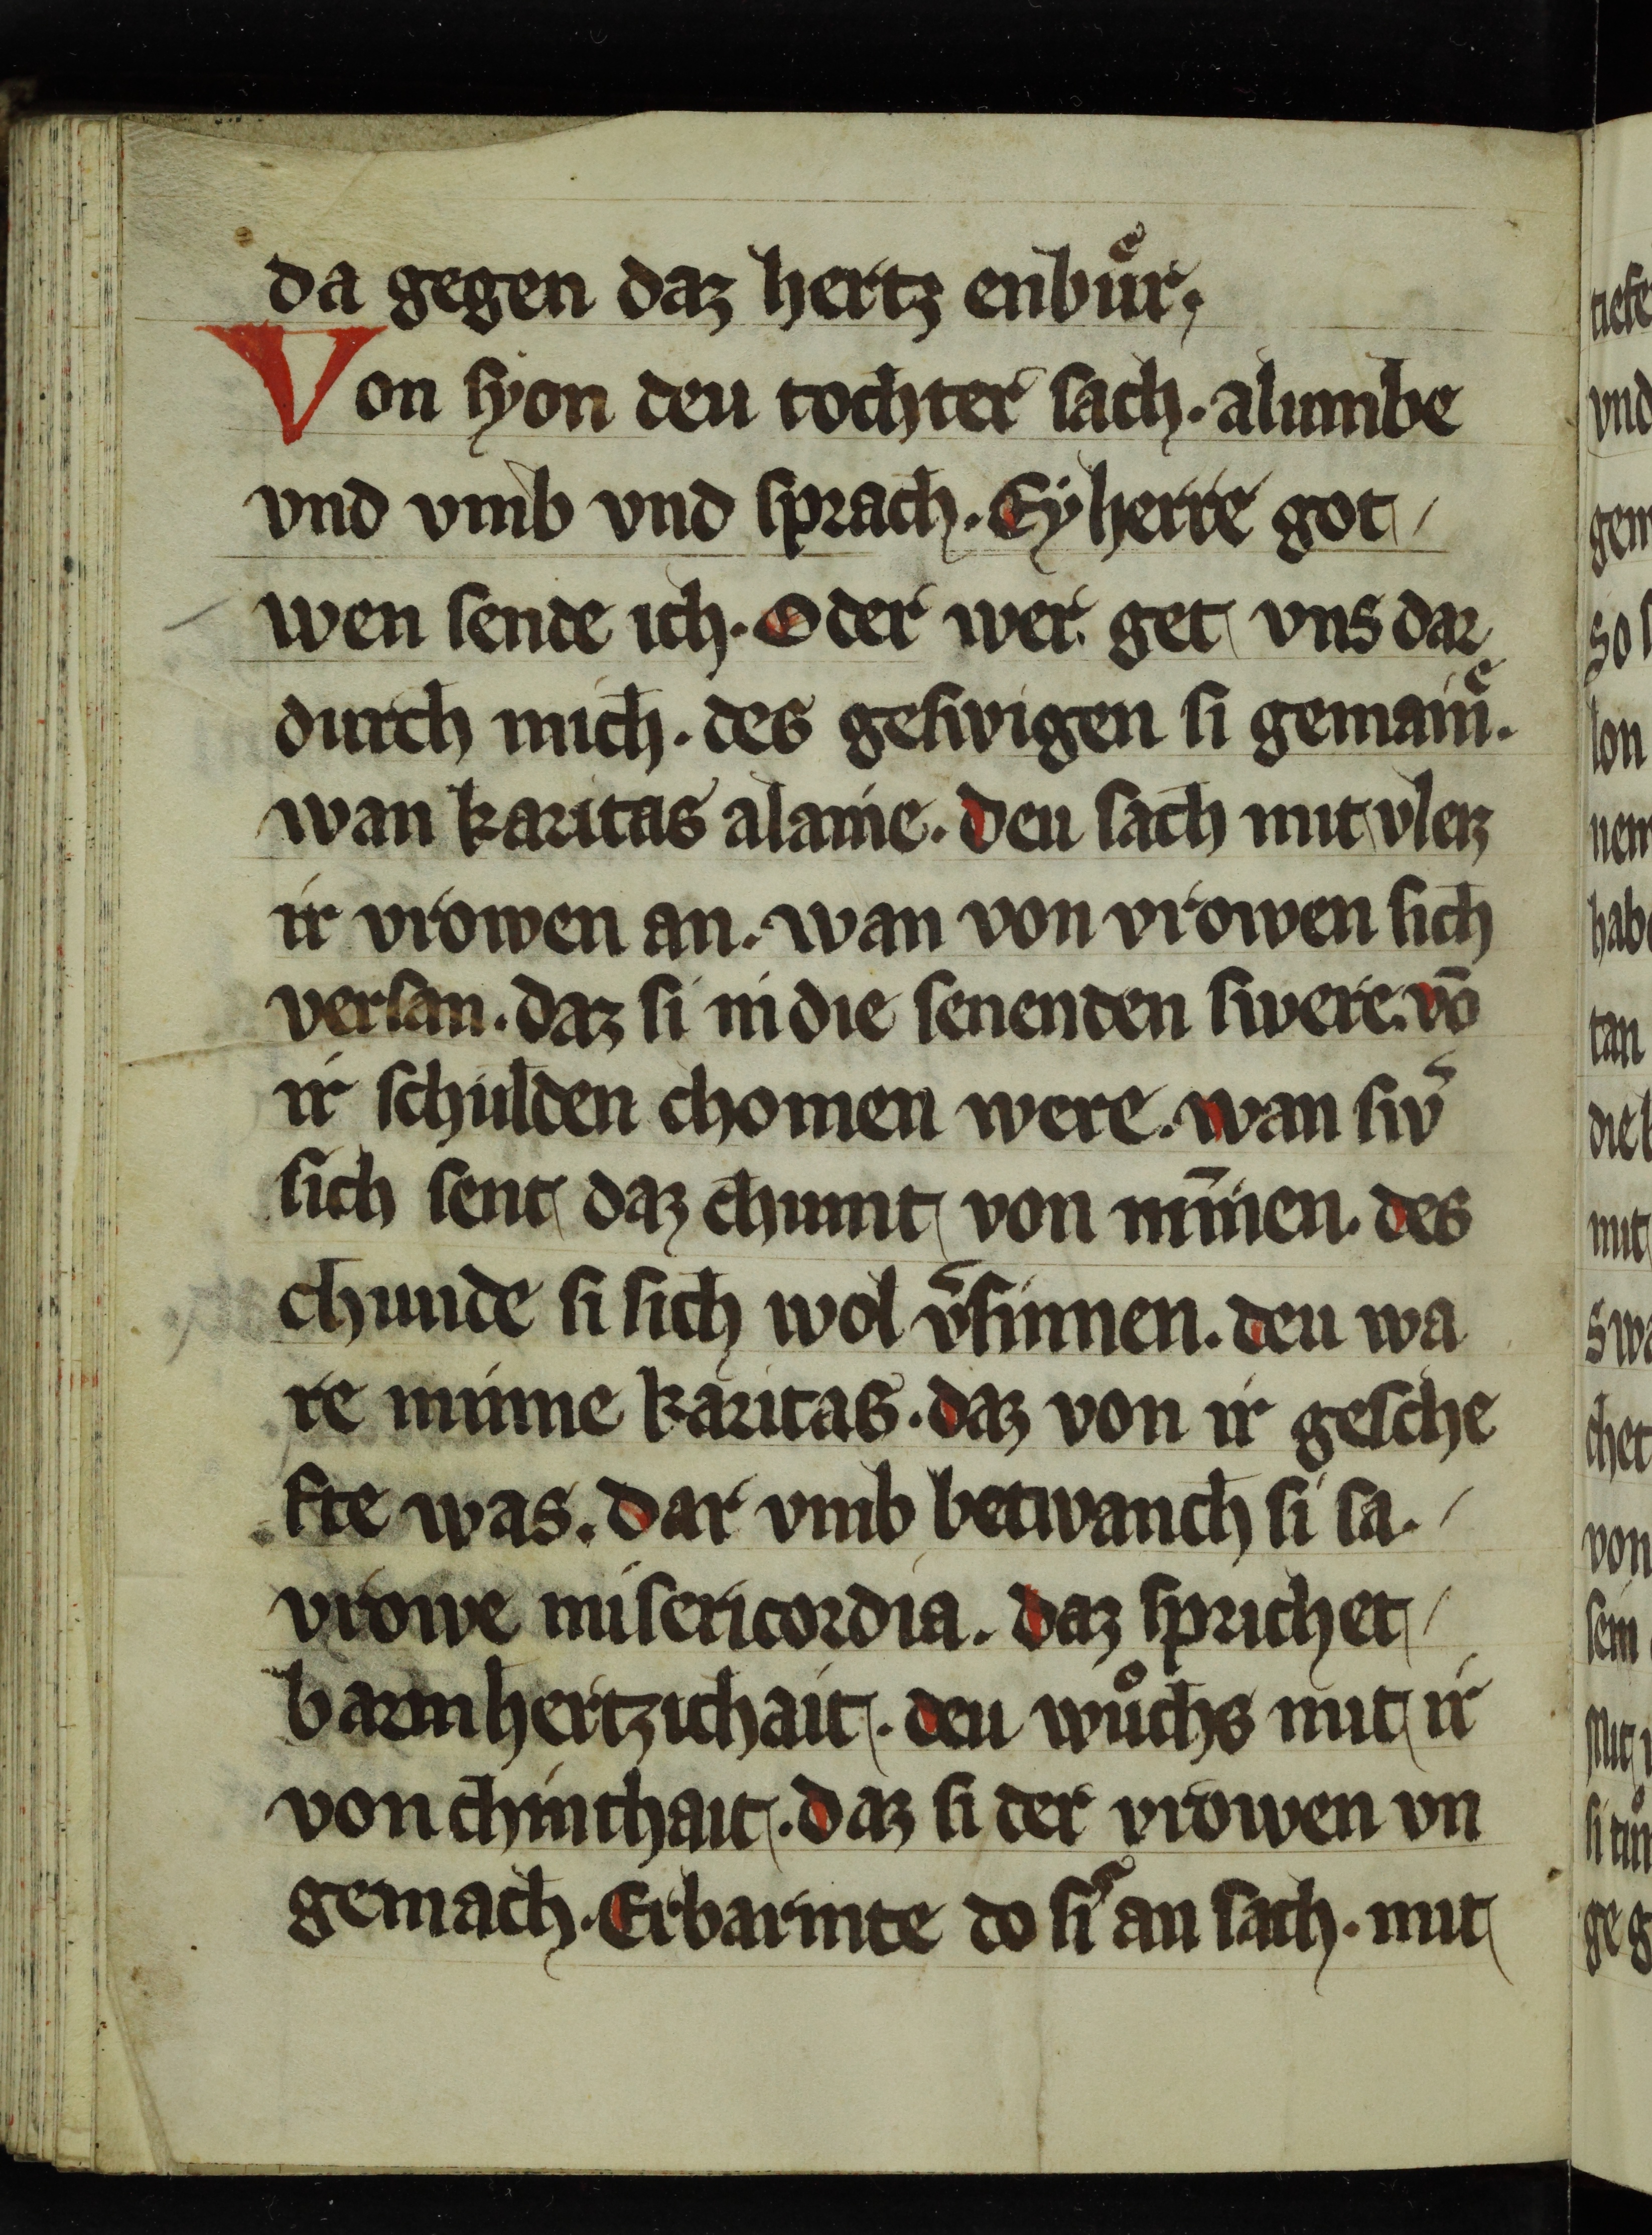 da gegen daz hertz enbuͤr.
Von syon deu tochter sach. alumbe
vnd vmb vnd sprach. Ey herre got /
wen sende ich. Oder wer get vns dar
durch mich. des geswigen si gemainͤ.
wan karitas alaine. Deu sach mit vleiz
ir vrowen an. wan von vrowen sich
versan. daz si in die senenden swere. vō
ir schulden chomen were. wan sw̾
sich sent daz chumt von mīnen. des
chunde si sich wol v̾sinnen. deu wa
re minne karitas. daz von ir gesche
fte was. dar vmb betwanch si sa. /
vrowe misericordia. daz sprichet /
barmhertzichait. deu wuͦchs mit ir
von chinthait. daz si der vrowen vn
gemach. Erbarmte do si͛ an sach. mit